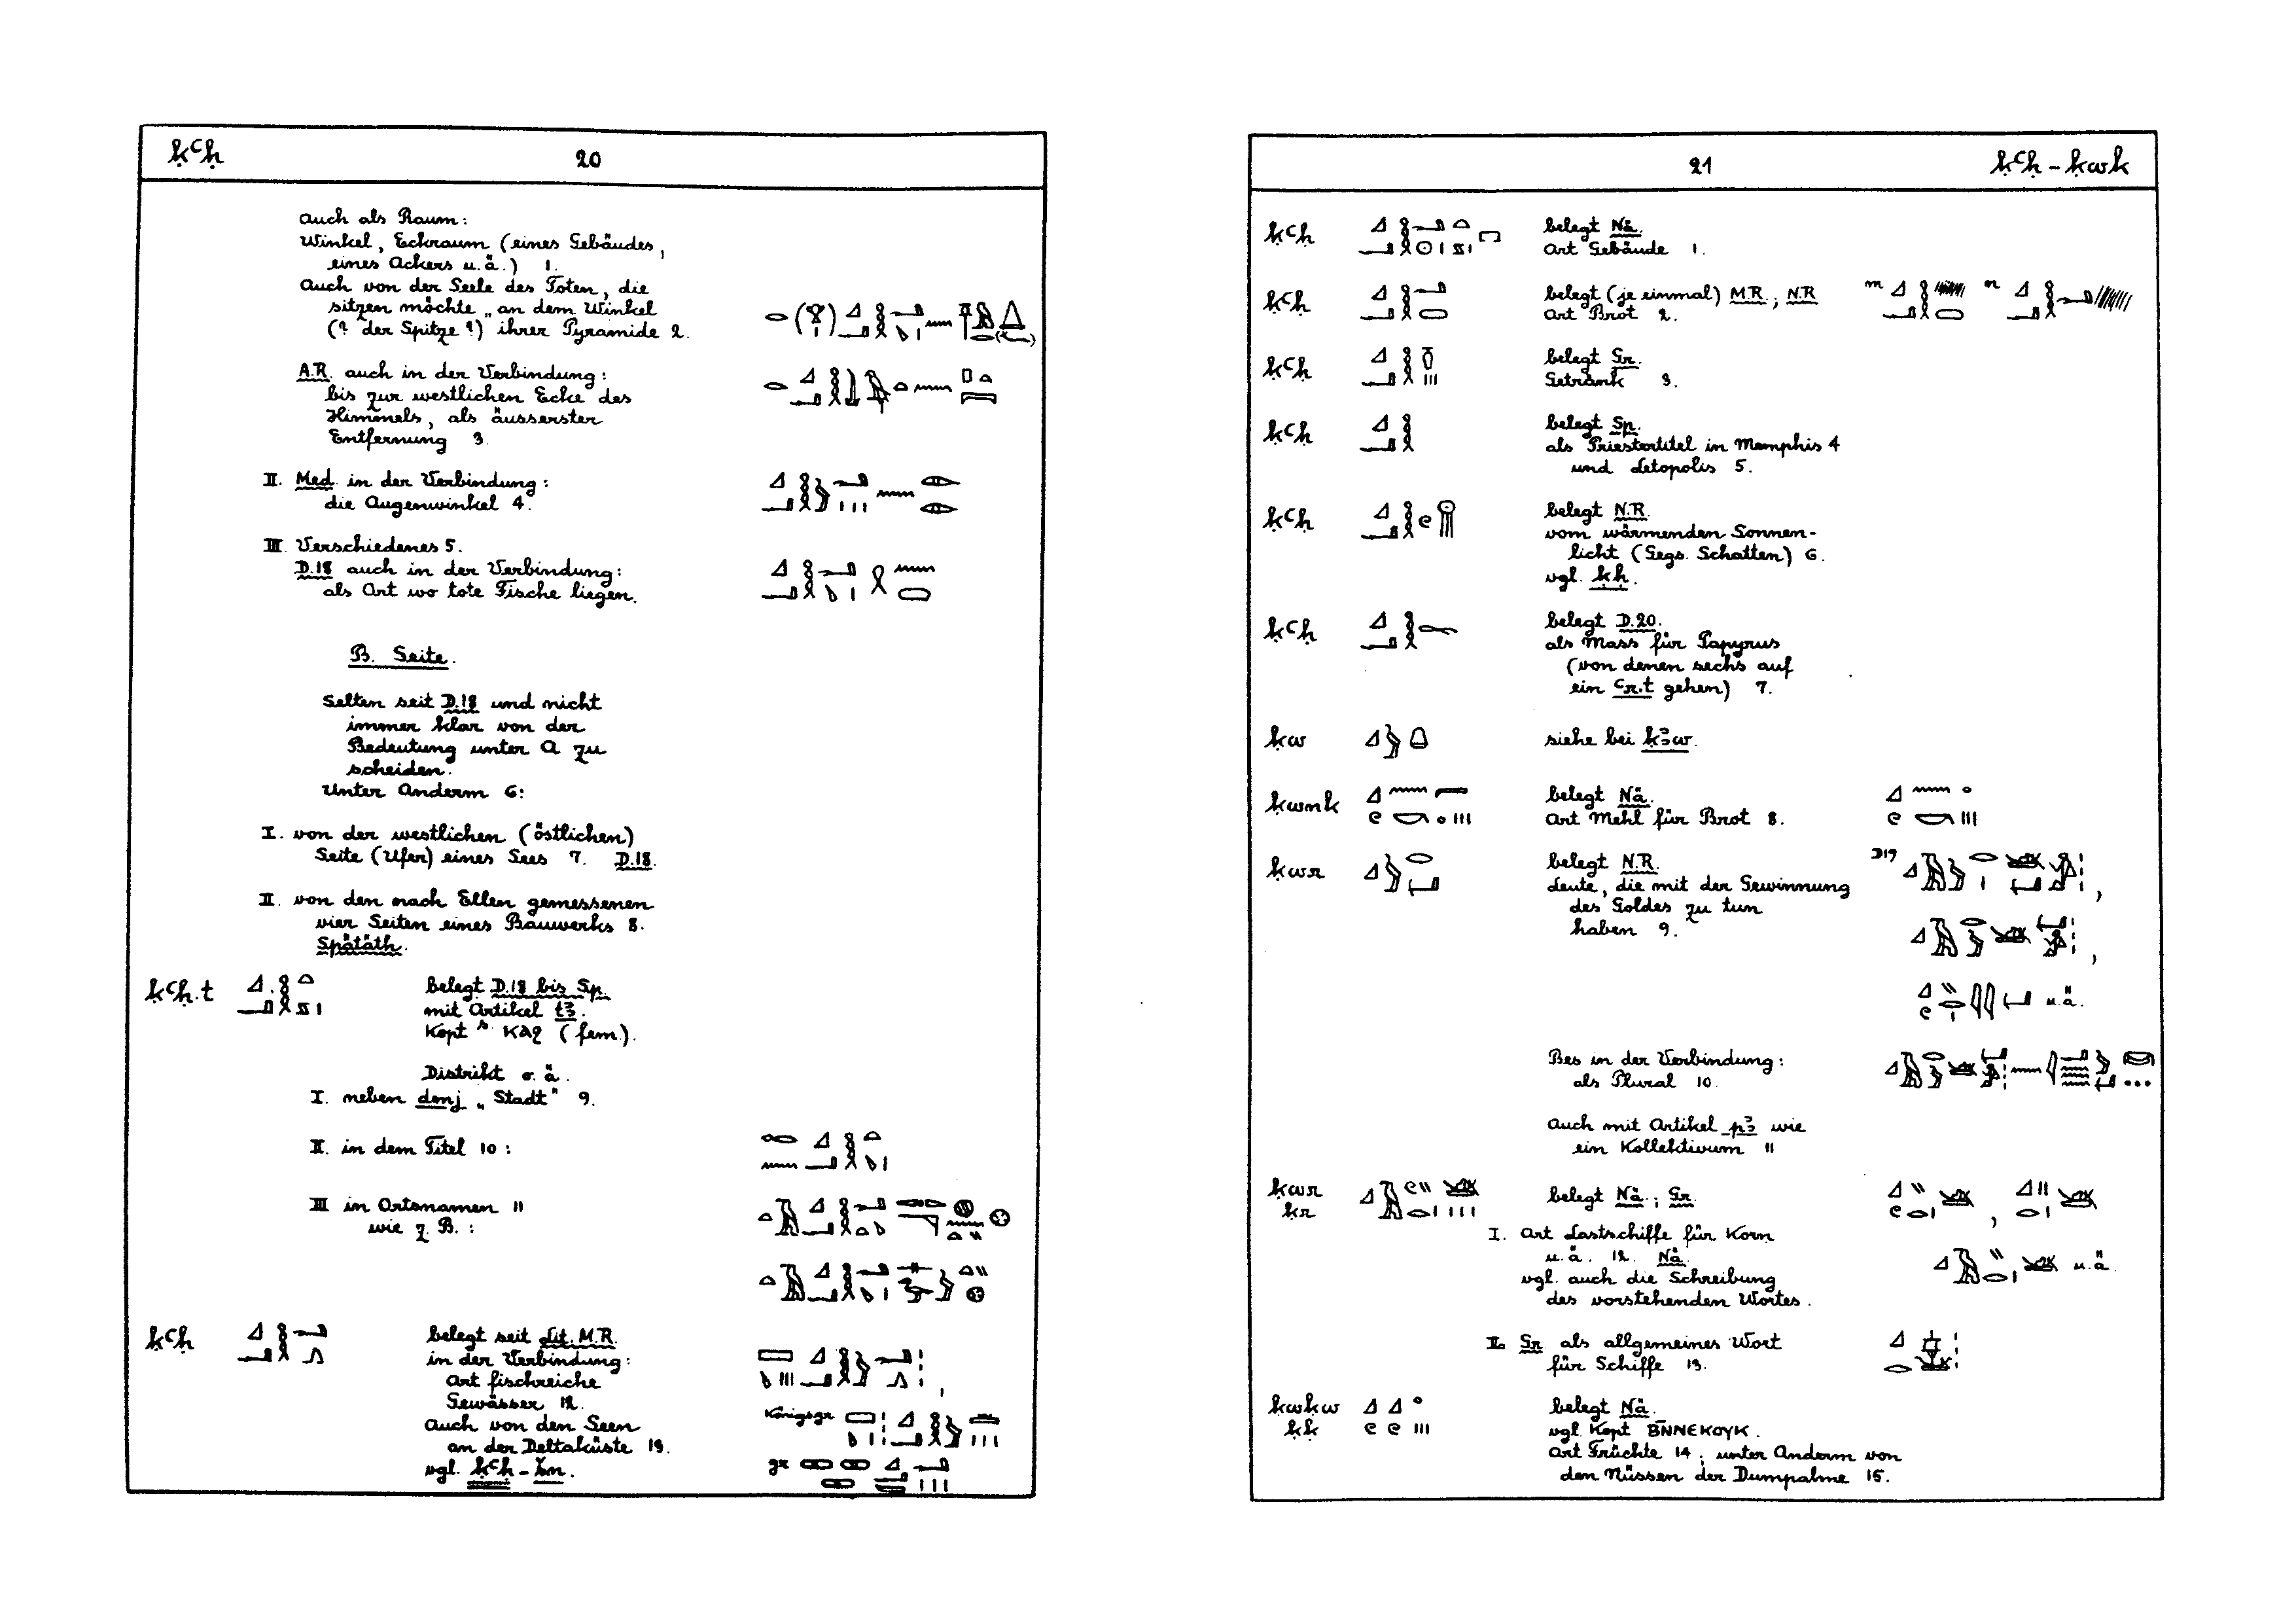 ḳꜥḥ
20
auch als Raum:
Winkel, Eckraum (eines Gebäudes,
eines Ackers u.ä.) 1.
Auch von der Seele des Toten, die
sitzen möchte „an dem Winkel
(? der Spitze?) ihrer Pyramide 2.
A.R. auch in der Verbindung:
bis zur westlichen Ecke des
Himmels, als äusserster
Entfernung 3.
II. Med. in der Verbindung:
die Augenwinkel 4.
III. Verschiedenes 5.
D.18 auch in der Verbindung:
als Ort wo tote Fische liegen.
B. Seite.
Selten seit D.18 und nicht
immer klar von der
Bedeutung unter A zu
scheiden.
Unter Anderm 6:
I. von der westlichen (östlichen)
Seite (Ufer) eines Sees 7. D.18.
II. von den nach Ellen gemessenen
vier Seiten eines Bauwerks 8.
Spätäth.
ḳꜥḥ.t
belegt D.18 bis Sp.
mit Artikel tꜣ.
Kopt. S. ⲕⲁϩ (fem.).
Distrikt o.ä.
I. neben dmj „Stadt" 9.
II. in dem Titel 10:
III in Ortsnamen 11
wie z.B.:
ḳꜥḥ
belegt seit Lit. M.R.
in der Verbindung:
Art fischreiche
Gewässer 12.
Auch von den Seen
an der Deltaküste 13.
vgl. ḳꜥḥ-
Königsgr
gr
21
ḳꜥḥ - ḳwḳ
ḳꜥḥ
belegt Nä.
Art Gebäude 1.
ḳꜥḥ
belegt (je einmal) M.R.; N.R
Art Brot 2.
m
n
ḳꜥḥ
belegt Gr.
Getränk 3.
ḳꜥḥ
belegt Sp.
als Priestertitel in Memphis 4
und Letopolis 5.
ḳꜥḥ
belegt N.R.
vom wärmenden Sonnen-
licht (Ggs. Schatten) 6.
vgl. ḳḥ.
ḳꜥḥ
belegt D.20.
als Mass für Papyrus
(von denen sechs auf
ein ꜥr.t gehen) 7.
ḳw
siehe bei ḳꜣw.
ḳwnk
belegt Nä.
Art Mehl für Brot 8.
ḳwr
belegt N.R.
Leute, die mit der Gewinnung
des Goldes zu tun
haben 9.
D19
,
,
u.ä.
Bes in der Verbindung:
als Plural 10.
Auch mit Artikel pꜣ wie
ein Kollektivum 11
ḳwr
ḳr
belegt Nä.; Gr
I. Art Lastschiffe für Korn
u.ä. 12. Nä.
vgl. auch die Schreibung
des vorstehenden Wortes.
,
u.ä.
II. Gr als allgemeines Wort
für Schiffe 13.
ḳwḳw
ḳḳ
belegt Nä.
vgl. Kopt ⲃⲛ̄ⲛⲉⲕⲟⲩⲕ.
Art Früchte 14; unter Anderm von
den Nüssen der Dumpalme 15.